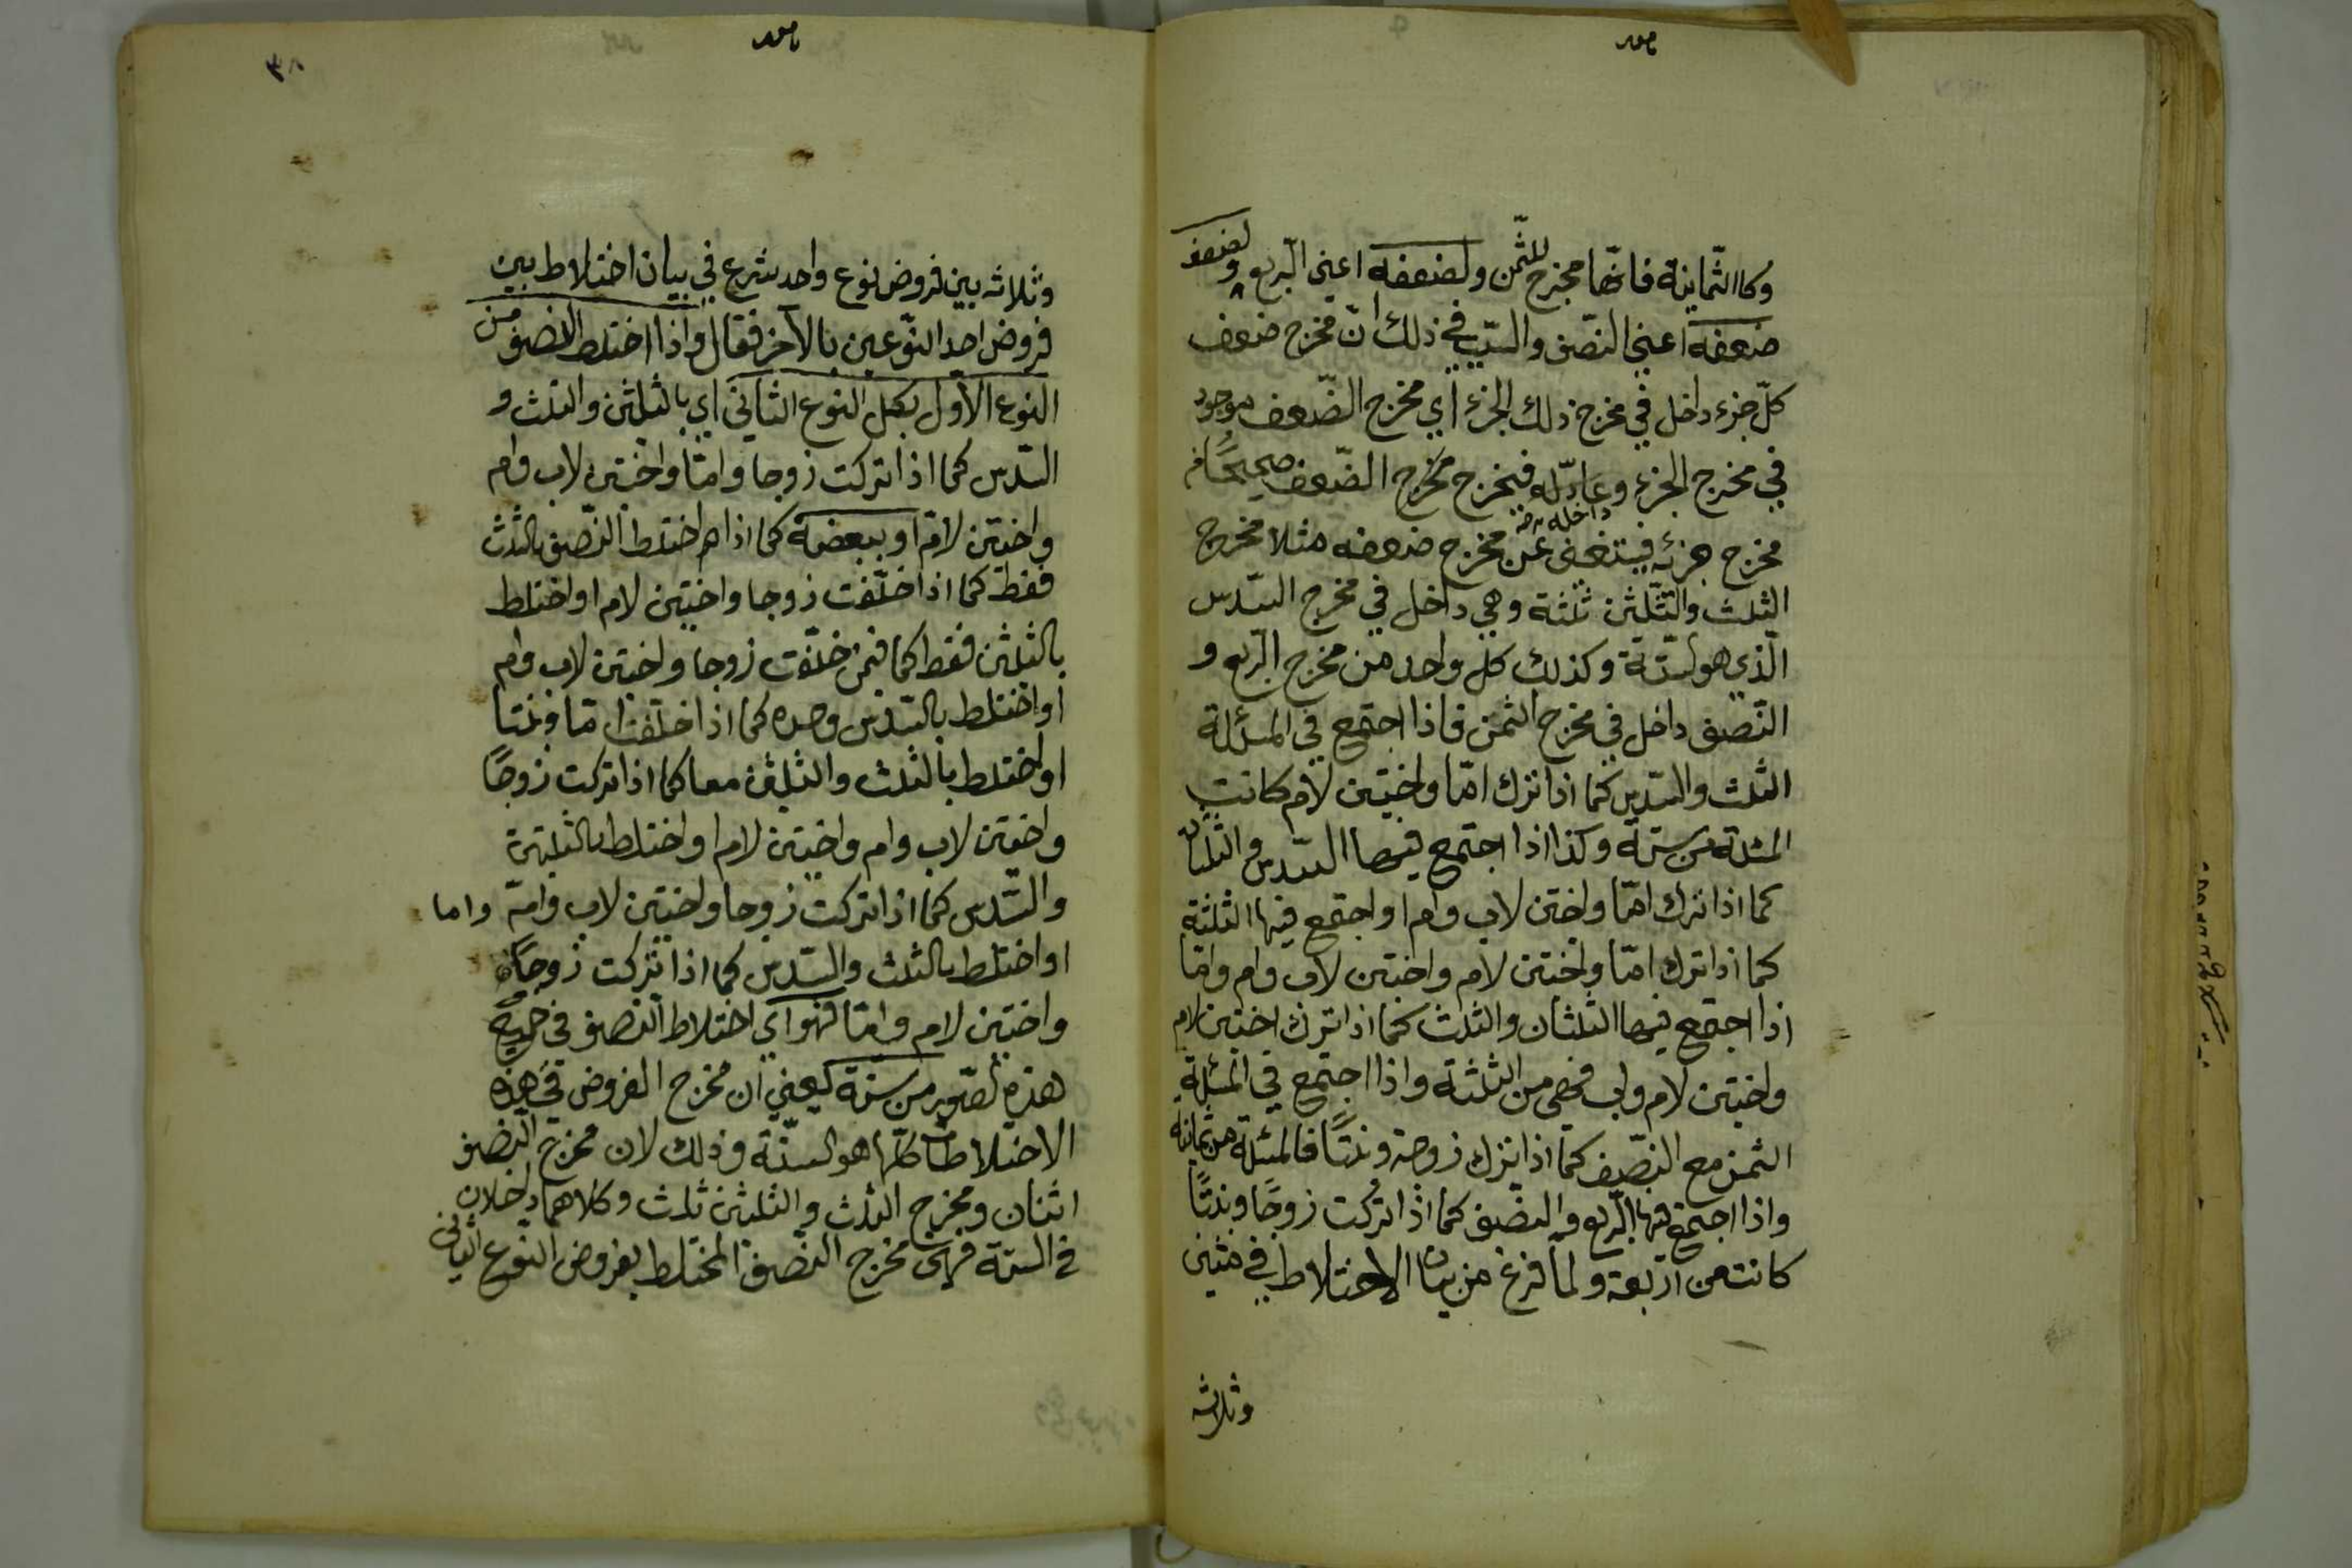 وكالثمانية فانها مخرج للثمن ولضعفه اعني الربع ولضعف
ضعفه اعني النصف والسبب في ذلك ان مخرج ضعف
كل جزء داخل في مخرج ذلك الجزء اي مخرج الضعف موجود
في مخرج الجزء فيخرج مخرج الضعف صحيحا من
داخله
مخرج جزئه فيستغنى عن مخرج ضعفه مثلا مخرج
الثلث والثلثين ثلثة وهي داخل في مخرج السدس
الذي هو الستة وكذلك كل واحد من مخرج الربع و
النصف داخل في مخرج الثمن فاذا اجتمع في المسئلة
الثلث والسدس كما اذا ترك اما واختين لام كانت
المسئلة من ستة وكذا اذا اجتمع فيها السدس والثلثان
كما اذا ترك اما واختين لاب وام او اجتمع فيها الثلثة
كما اذا ترك اما واختين لام واختين لاب وام واما
اذا اجتمع فيها الثلثان والثلث كما اذا ترك اختين لام
واختين لام واب فهي من الثلثة واذا اجتمع في المسئلة
الثمن مع النصف كما اذا ترك زوجة وبنتا فالمسئلة من ثمانية
واذا اجتمع فيها الربع والنصف كما اذا تركت زوجا وبنتا
كانت من اربعة ولما فرغ من بيان الاختلاط في مثنى
وثلاث
وثلاث بين فروض نوع واحد شرع في بيان اختلاط بين
فروض احد النوعين بالآخر فقال واذا اختلط النصف من
النوع الاول بكل النوع الثاني اي بالثلثين والثلث و
السدس كما اذا تركت زوجا واما واختين لاب وام
واختين لام او ببعضه كما اذا اختلط النصف بالثلث
فقط كما اذا خلفت زوجا واختين لام او اختلط
بالثلثين فقط كما فيمن خلفت زوجا واختين لاب وام
او اختلط بالسدس وحده كما اذا خلفت اما وبنتا
او اختلط بالثلث والثلثين معا كما اذا تركت زوجا
واختين لاب وام واختين لام او اختلط بالثلثين
والسدس كما اذا تركت زوجا واختين لاب وام واما
او اختلط بالثلث والسدس كما اذا تركت زوجا
واختين لام واما فهو اي اختلاط النصف في جميع
هذه الصور من ستة يعني ان مخرج الفروض في هذه
الاختلاطات كلها هو الستة وذلك لان مخرج النصف
اثنان ومخرج الثلث والثلثين ثلث وكلاهما داخلان
في الستة فهي مخرج النصف المختلط بفروض النوع الثاني